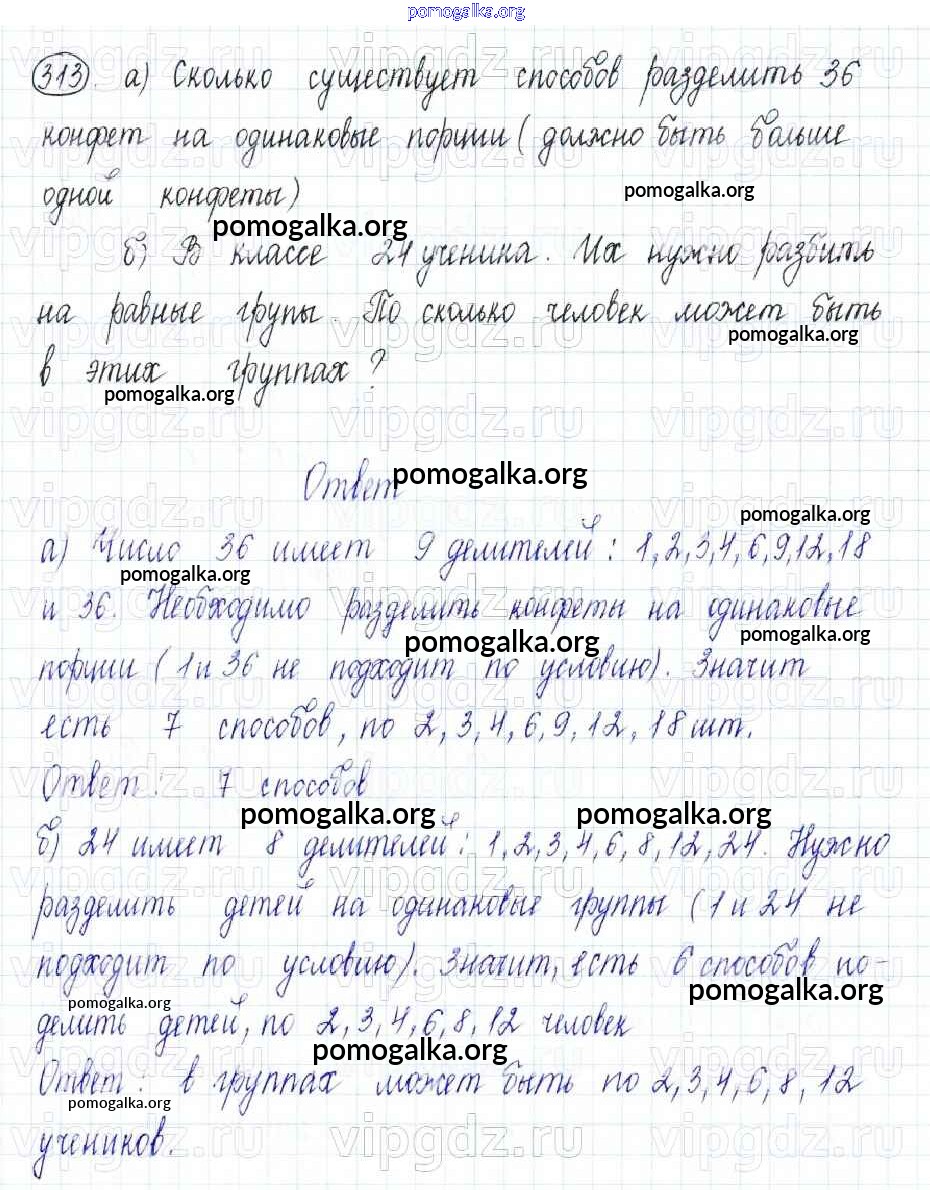 pomogalka.org
313 а) Сколько существует способов разделить 36
конфет на одинаковые порции (должно быть больше
одной конфеты)
pomogalka.org
pomogalka.org
б) В классе 24 ученика. Их нужно разбить
на равные групы. По сколько человек может быть
pomogalka.org
в этих группах?
pomogalka.org
Ответ
pomogalka.org
pomogalka.org
а) Число 36 имеет 9 делителей: 1,2,3,4,6,9,12,18
pomogalka.org
и 36. Необходимо разделить конфеты на одинаковые
pomogalka.org
pomogalka.org
порции (1 и 36 не подходит по условию). Значит
есть 7 способов, по 2,3,4,6,9,12,18 шт.
Ответ: 7 способов
pomogalka.org
pomogalka.org
б) 24 имеет 8 делителей: 1,2,3,4,6,8,12,24. Нужно
разделить детей на одинаковые группы (1 и 24 не
подходит по условию). Значит, есть 6 способов по-
pomogalka.org
pomogalka.org
делить детей, по 2,3,4,6,8,12 человек
pomogalka.org
Ответ: в группах может быть по 2,3,4,6,8,12
pomogalka.org
учеников.
vipgdz.ru